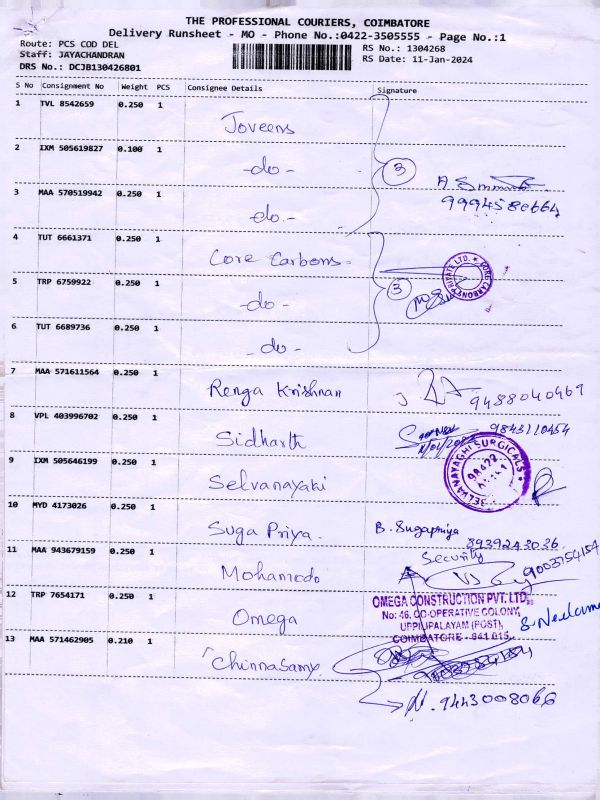 THE PROFESSIONAL COURIERS, COIMBATORE
Delivery Runsheet - MO - Phone No.:0422-3505555 - Page No.:1
Route: PCS COD DEL
Staff: JAYACHANDRAN
DRS No.: DCJB130426801
RS No.: 1304268
RS Date: 11-Jan-2024
S No Consignment No Weight PCS Consignee Details Signature
1 TVL 8542659 0.250 1 Joveens
2 IXM 505619827 0.100 1 -do-
3 MAA 570519942 0.250 1 -do-
3
9994580664
4 TUT 6661371 0.250 1 Core Carbons.
5 TRP 6759922 0.250 1 -do-
6 TUT 6689736 0.250 1 -do-
3
CORE CARBONS PRIVATE LTD.
7 MAA 571611564 0.250 1 Renga Krishnan
9488040469
8 VPL 403996702 0.250 1 Sidharth
9843110454
9 IXM 505646199 0.250 1 Selvanayaki
SELVANAYAGHI SURGICALS
98422
10 MYD 4173026 0.250 1 Suga Priya. B. Sugapriya
8939243036
11 MAA 943679159 0.250 1 Mohamodo
Security
9003754154
12 TRP 7654171 0.250 1 Omega
OMEGA CONSTRUCTION PVT. LTD.,
No: 46, CO-OPERATIVE COLONY,
UPPILIPALAYAM (POST),
COIMBATORE - 641 015.
13 MAA 571462905 0.210 1 Chinnasamy
9443008066